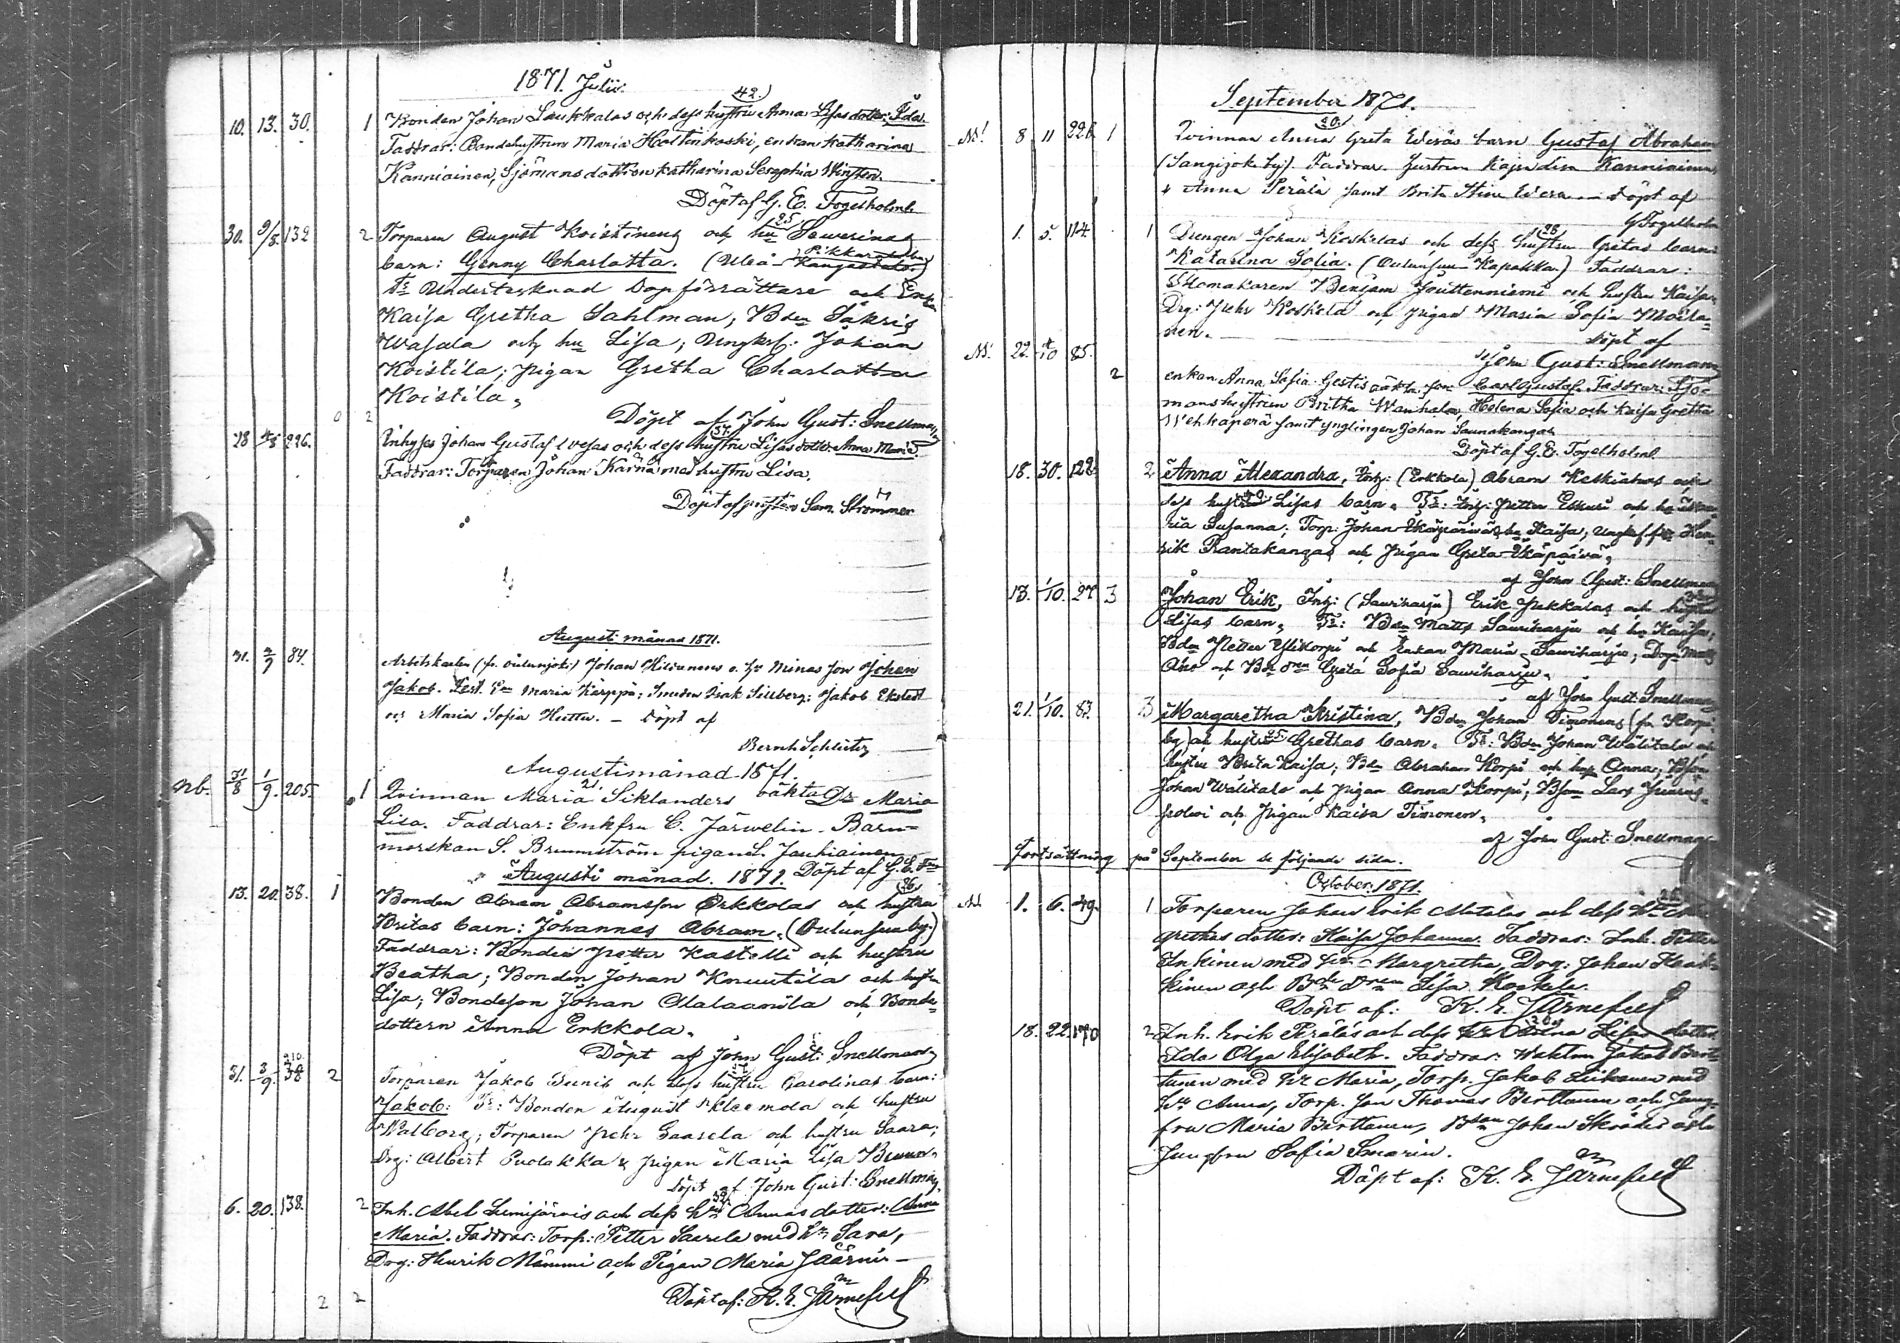 1871. Julii.
42.)
10. 13. 30. 1 Bonden Johan Laukkalas och dess hustru Anna Lisas dotter: Ida.
Faddrar: Bondehustrun Maria Holtinkoski, enkan Katharina
Kanniainen, Sjömansdottren Katharina Seraphia Winsten.
Döpt af G. E. Fogelholm.
25
30. 9/8. 132 2 Torparen August Koistinens och hu Sewerinas
barn: Genny Charlotta. (Uleå Pikkarala
Kangastalo.)
Fr Undertecknad Dopförrättare och Enkan
Kaisa Gretha Sahlman; Bden Sakris
Wasala och hu Lisa; Ungkrl: Johan
Koistila; Pigan Gretha Charlotta
Koistila.
0 2 Döpt af John Gust: Snellman
37.
28 226. Inhyses Johan Gustaf och dess hustru Lisas dotter Anna Maria
Faddrar: Torparen Johan Kärnä med hustru Lisa.
Döpt af Sam. Strömmer
Augusti månad 1871.
31. 2/9 84. Arbetskarlen (fr. Oulunjoki) Johan Hiltunens o. hr Minas son Johan
Jakob. Test. Maria Kärppä; Smeden Isak Sillberg; Jakob Ekstedt
och Maria Sofia Huttu. — Döpt af
Bernh Schlüter
Augustimånad 1871.
nb. 31/8 1/9. 205. 1 Qvinnan Maria Siklanders oäkta Dr Maria
Lisa. Faddrar: Enkfru C. Järwelin. Barn-
morskan S. Brunnström pigan L. Jauhiainen
Döpt af G. E. Fm
Augusti månad. 1871.
26.
13. 20. 38. 1 Bonden Abram Abramsson Erkkolas och hustru
Britas barn: Johannes Abram. (Oulunsuu by.)
Faddrar: Bonden Petter Kastelli och hustru
Beatha; Bonden Johan Knuutila och hustru
Lisa; Bondeson Johan Alalaamila och Bonde-
dottern Anna Erkkola.
Döpt af John Gust: Snellman
31. 3/9. 38 2 Torparen Jakob Tunis och dess hustru Carolinas barn:
Jakob: Fr: Bonden August Kleemola och hustru
Walborg; Torparen Pehr Saarela och hustru Saara;
Drg: Albert Puolakka & Pigan Maria Lisa Brunn.
Döpt af John Gust: Snellman
6. 20. 138. 2 Inh. Abel Lumijärvis och dess hu Annas dotter: Anna
Maria. Faddrar: Torp: Petter Saarela med hu Sara,
Drg: Henrik Mämmi och Pigan Maria Jäärni —
Döpt af: K. E. Järnefelt
2 2
September 1871.
20.
Nb. 8 11 226. 1 Qvinnan Anna Greta Weräs barn Gustaf Abraham
(Sangijoki by). Faddrar. Kajsa Lisa Kanniainen,
& Anna Perälä samt Brita Stina Wera — Döpt af
G Fogelholm
28
1. 5. 114. 1 Drengen Johan Koskelas och dess hustru Gretas barn:
Katarina Sofia. (Oulunsuu Kapakka) Faddrar:
Skomakaren Benjam Juuttenniemi och hustru Kaisa;
Drg: Pehr Koskela och Pigan Maria Sofia Moila-
nen. Döpt af
John Gust: Snellman
Nb. 22. 4/10 85. 2 enkan Anna Sofia Gestis oäkta son Carl Gustaf. Faddrar: Sjö-
manshustrun Britha Wanhala, Helena Sofia och Kaisa Gretha
Wehkaperä samt ynglingen Johan Saunakangas
Döpt af G. E. Fogelholm.
18. 30. 122. 2 Anna Alexandra, Inh: (Erkkola) Abram Keskiahos och
dess hustru Lisas barn. Fr: Inh: Petter Essuri och hu
ria Susanna; Torp: Johan Ikäpäivä hu Kaisa; Ungkrl Hen-
rik Rantakangas och Pigan Greta Ikäpäivä,
af John Gust: Snellman
13. 1/10. 27 3 Johan Erik, Inh: (Sawiharju) Erik Pekkalas och hustru
Lisas barn. Fr: Bden Matts Sawiharju och hu Kaisa;
Bden Petter Ylikorpi och Enkan Maria Sawiharju; Drgn Matts
Aho och Greta Sofia Sawiharju.
af John Gust: Snellman
21. 1/10. 83. 3 Margaretha Kristina, Bden Johan Timonens (fr Korpi
by) och hustru Grethas barn. Fr: Bden Johan Wälitalo och
hustru Brita Kaisa; Bden Abraham Korpi och hu Anna;
Johan Wälitalo och Pigan Anna Korpi; Lars
och Pigan Kaisa Timonen.
af John Gust: Snellman
Fortsättning på September se följande sida.
October 1871.
Nb. 1. 6. 49. 1 Torparen Johan Erik Matelas och dess hu Mar-
grethas dotter: Kaisa Johanna. Faddrar: Inh. Petter
Inkinen med hu Margretha, Drg: Johan
kinen och Lisa Koskela.
Döpt af: K. E. Järnefelt
18. 22. 170 2 Inh. Erik Peräläs och dess hu Lisas dotter
Ida Olga Elisabeth. Faddrar: Jakob Bert-
tunen med hu Maria, Torp. Jakob Leikanen med
hu Anna, Torp. Son Thomas Berttunen och Jung-
fru Maria Berttunen, Johan Skröder och
Jungfru Sofia Snarin.
Döpt af: K. E. Järnefelt